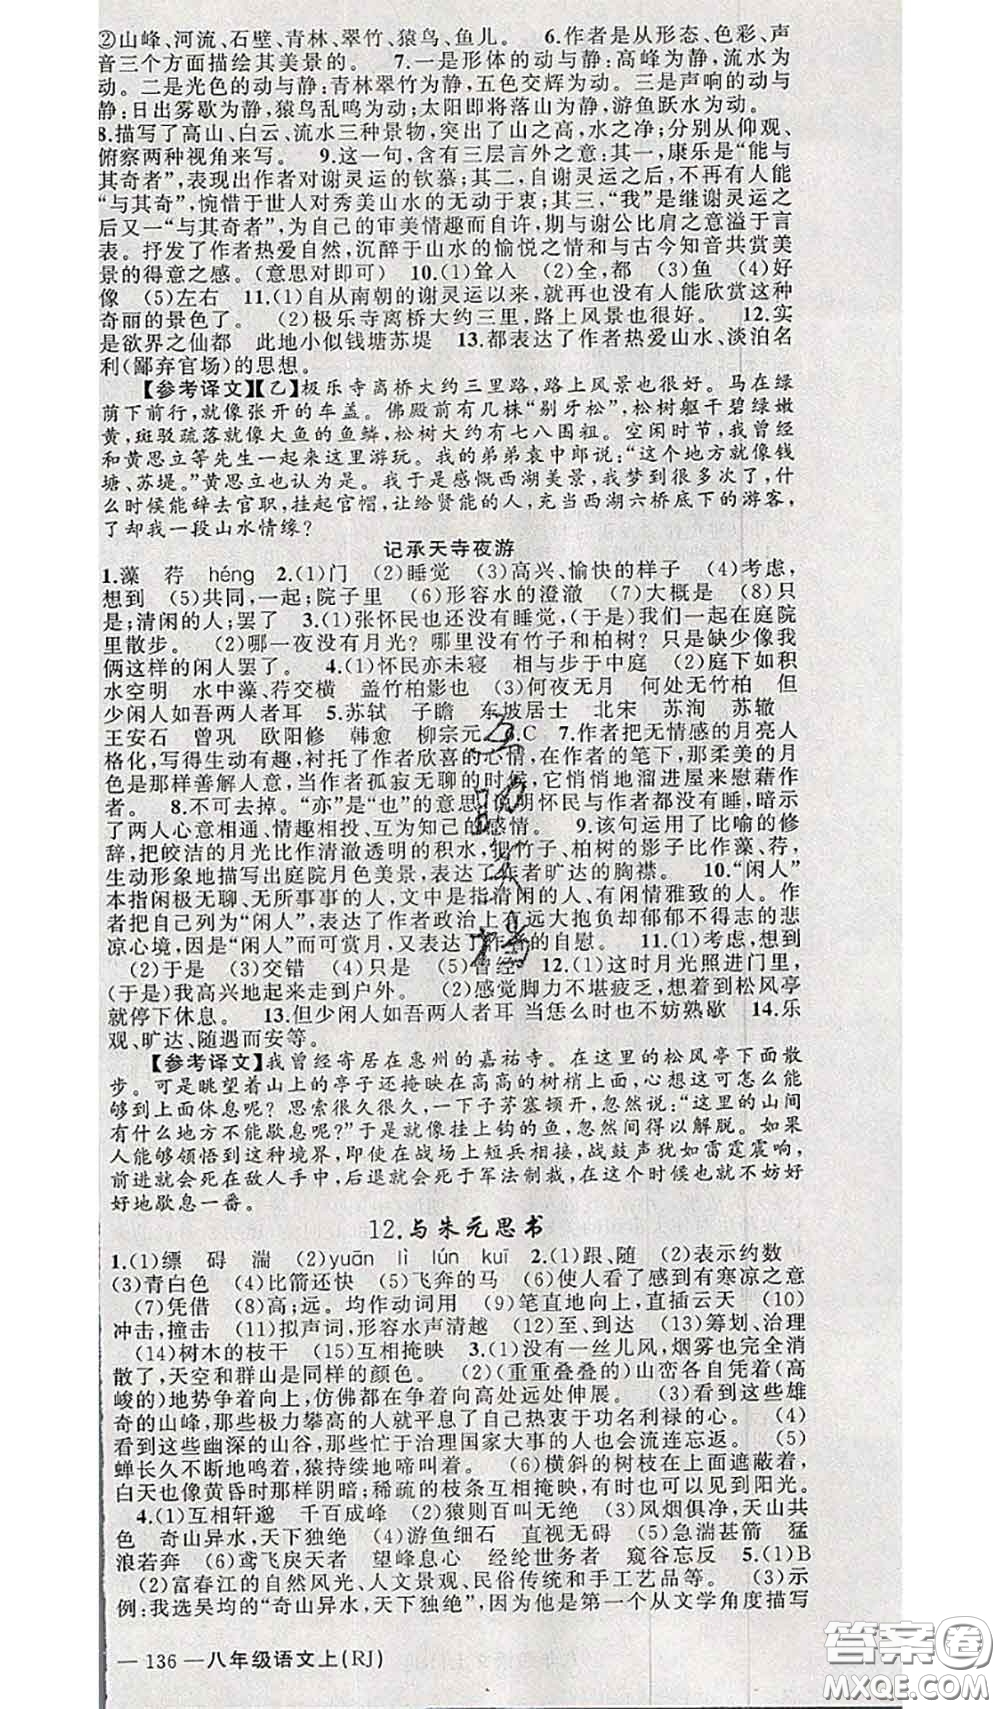 ②山峰、河流、石壁、青林、翠竹、猿鸟、鱼儿。　6.作者是从形态、色彩、声
音三个方面描绘其美景的。　7.一是形体的动与静:高峰为静,流水为
动。二是光色的动与静:青林翠竹为静,五色交辉为动。三是声响的动与
静:日出雾歇为静,猿鸟乱鸣为动;太阳即将落山为静,游鱼跃水为动。
8.描写了高山、白云、流水三种景物,突出了山之高,水之净;分别从仰观、
俯察两种视角来写。　9.这一句,含有三层言外之意:其一,康乐是“能与
其奇者”,表现出作者对谢灵运的钦慕;其二,自谢灵运之后,不再有人能
“与其奇”,惋惜于世人对秀美山水的无动于衷;其三,“我”是继谢灵运之
后又一“与其奇者”,为自己的审美情趣而自许,期与谢公比肩之意溢于言
表。抒发了作者热爱自然,沉醉于山水的愉悦之情和与古今知音共赏美
景的得意之感。(意思对即可)　10.(1)耸入　(2)全,都　(3)鱼　(4)好
像　(5)左右　11.(1)自从南朝的谢灵运以来,就再也没有人能欣赏这种
奇丽的景色了。　(2)极乐寺离桥大约三里,路上风景也很好。　12.实
是欲界之仙都　此地小似钱塘苏堤　13.都表达了作者热爱山水、淡泊名
利(鄙弃官场)的思想。
【参考译文】【乙】极乐寺离桥大约三里路,路上风景也很好。马在绿
荫下前行,就像张开的车盖。佛殿前有几株“剔牙松”,松树躯干碧绿嫩
黄,斑驳疏落就像大鱼的鱼鳞,松树大约有七八围粗。空闲时节,我曾经
和黄思立等先生一起来这里游玩。我的弟弟袁中郎说:“这个地方就像钱
塘、苏堤。”黄思立也认为是。我于是感慨西湖美景,我梦到很多次了,什
么时候能辞去官职,挂起官帽,让给贤能的人,充当西湖六桥底下的游客,
了却我一段山水情缘?
记承天寺夜游
1.藻　荇　héng　2.(1)门　(2)睡觉　(3)高兴、愉快的样子　(4)考虑,
想到　(5)共同,一起;院子里　(6)形容水的澄澈　(7)大概是　(8)只
是;清闲的人;罢了　3.(1)张怀民也还没有睡觉,(于是)我们一起在庭院
里散步。　(2)哪一夜没有月光?哪里没有竹子和柏树?只是缺少像我
俩这样的闲人罢了。　4.(1)怀民亦未寝　相与步于中庭　(2)庭下如积
水空明　水中藻、荇交横　盖竹柏影也　(3)何夜无月　何处无竹柏　但
少闲人如吾两人者耳　5.苏轼　子瞻　东坡居士　北宋　苏洵　苏辙
王安石　曾巩　欧阳修　韩愈　柳宗元　6.C　7.作者把无情感的月亮人
格化,写得生动有趣,衬托了作者欣喜的心情,在作者的笔下,那柔美的月
色是那样善解人意,当作者孤寂无聊的时候,它悄悄地溜进屋来慰藉作
者。　8.不可去掉。“亦”是“也”的意思,说明怀民与作者都没有睡,暗示
了两人心意相通、情趣相投、互为知己的感情。　9.该句运用了比喻的修
辞,把皎洁的月光比作清澈透明的积水,把竹子、柏树的影子比作藻、荇,
生动形象地描写出庭院月色美景,表达了作者旷达的胸襟。　10.“闲人”
本指闲极无聊、无所事事的人,文中是指清闲的人,有闲情雅致的人。作
者把自己列为“闲人”,表达了作者政治上有远大抱负却郁郁不得志的悲
凉心境,因是“闲人”而可赏月,又表达了作者的自慰。　11.(1)考虑,想到
(2)于是　(3)交错　(4)只是　(5)曾经　12.(1)这时月光照进门里,
(于是)我高兴地起来走到户外。　(2)感觉脚力不堪疲乏,想着到松风亭
就停下休息。　13.但少闲人如吾两人者耳　当恁么时也不妨熟歇　14.乐
观、旷达、随遇而安等。
【参考译文】我曾经寄居在惠州的嘉祐寺。在这里的松风亭下面散
步。可是眺望着山上的亭子还掩映在高高的树梢上面,心想这可怎么能
够到上面休息呢?思索很久很久,一下子茅塞顿开,忽然说:“这里的山间
有什么地方不能歇息呢?”于是就像挂上钩的鱼,忽然间得以解脱。如果
人能够领悟到这种境界,即使在战场上短兵相接,战鼓声犹如雷霆震响,
前进就会死在敌人手中,后退就会死于军法制裁,在这个时候也就不妨好
好地歇息一番。
12.与朱元思书
1.(1)缥　碍　湍　(2)yuān　lì　lún　kuī　2.(1)跟、随　(2)表示约数
(3)青白色　(4)比箭还快　(5)飞奔的马　(6)使人看了感到有寒凉之意
(7)凭借　(8)高;远。均作动词用　(9)笔直地向上,直插云天　(10)
冲击,撞击　(11)拟声词,形容水声清越　(12)至、到达　(13)筹划、治理
(14)树木的枝干　(15)互相掩映　3.(1)没有一丝儿风,烟雾也完全消
散了,天空和群山是同样的颜色。　(2)(重重叠叠的)山峦各自凭着(高
峻的)地势争着向上,仿佛都在争着向高处远处伸展。　(3)看到这些雄
奇的山峰,那些极力攀高的人就平息了自己热衷于功名利禄的心。　(4)
看到这些幽深的山谷,那些忙于治理国家大事的人也会流连忘返。　(5)
蝉长久不断地鸣着,猿持续地啼叫着。　(6)横斜的树枝在上面遮蔽着,
白天也像黄昏时那样阴暗;稀疏的枝条互相掩映,有时也可以见到阳光。
4.(1)互相轩邈　千百成峰　(2)猿则百叫无绝　(3)风烟俱净,天山共
色　奇山异水,天下独绝　(4)游鱼细石　直视无碍　(5)急湍甚箭　猛
浪若奔　(6)鸢飞戾天者　望峰息心　经纶世务者　窥谷忘反　5.(1)B
(2)富春江的自然风光、人文景观、民俗传统和手工艺品等。　(3)示
例:我选吴均的“奇山异水,天下独绝”,因为他是第一个从文学角度描写
— 136 —八年级语文上(RJ)
答案圈
MXQE.COM